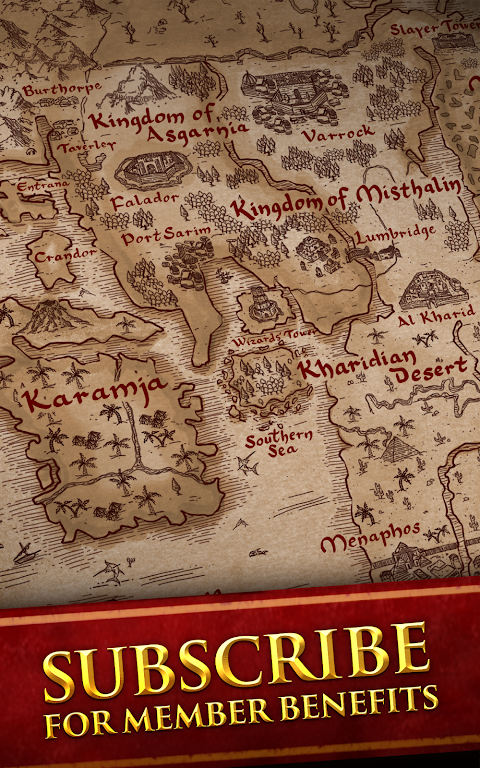 Slayer Tower
Burthorpe
Kingdom of
Asgarnia
Varrock
Taverley
Entrana
Falador
Kingdom of Misthalin
Port Sarim
Lumbridge
Crandor
Al Kharid
Wizards' Tower
Kharidian
Desert
Karamja
Southern
Sea
Menaphos
SUBSCRIBE
FOR MEMBER BENEFITS